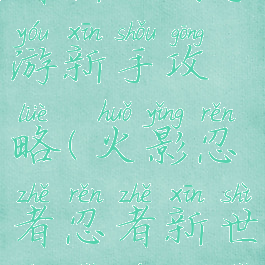 yóu xīn shǒu gōng
游新手攻
lüè huǒ yǐng rěn
略(火影忍
zhě rěn zhě xīn shì
者忍者新世